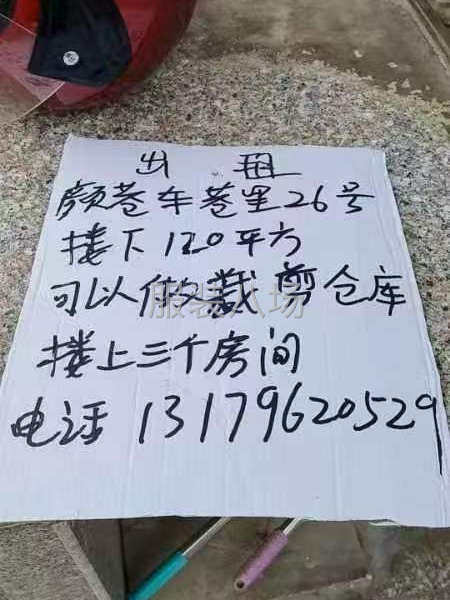 出 租
颜巷车巷里26号
搂下120平方
可以做裁剪仓库
搂上三个房间
电话 13179620529
服装人场